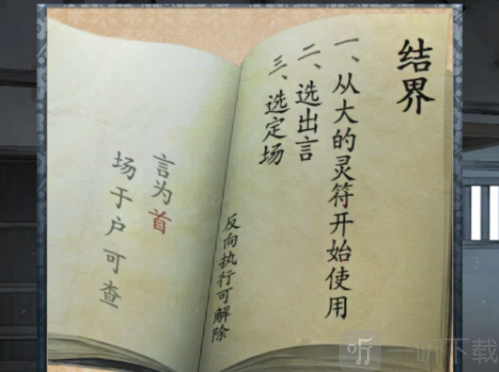 结界
一、从大的灵符开始使用
二、选出言
三、选定场
反向执行可解除
言为首
场于户可查
听 一听下载